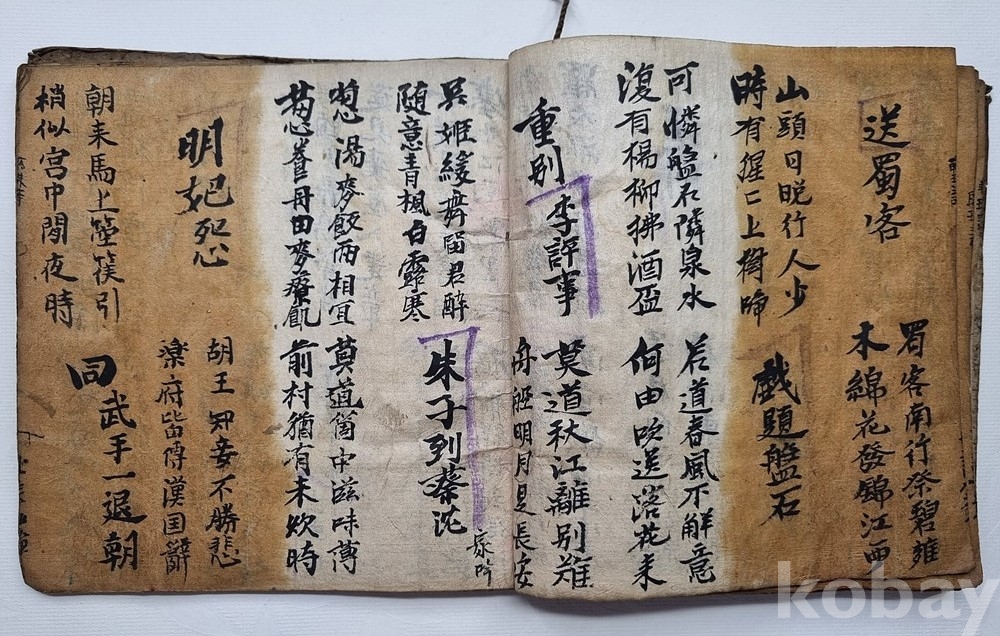 送蜀客
蜀客南行祭碧雍
木綿花發錦江西
山頭日晚行人少
時有猩〻上樹啼
戱題盤石
可憐盤石隣泉水
復有楊柳拂酒盃
若道春風不解意
何由吹送落花来
重別李評事
莫道秋江離別難
舟船明月是長安
吳姬緩舞留君醉
随意青楓白露寒
朱子到蔡沈
家吟
葱湯麥飯兩相宜
葱養丹田麥療飢
莫道箇中滋味薄
前村猶有未炊時
明妃怨
胡王知妾不勝悲
樂府皆傳漢国辭
朝来馬上箜篌引
梢似宮中閒夜時
同武手一退朝
kobay